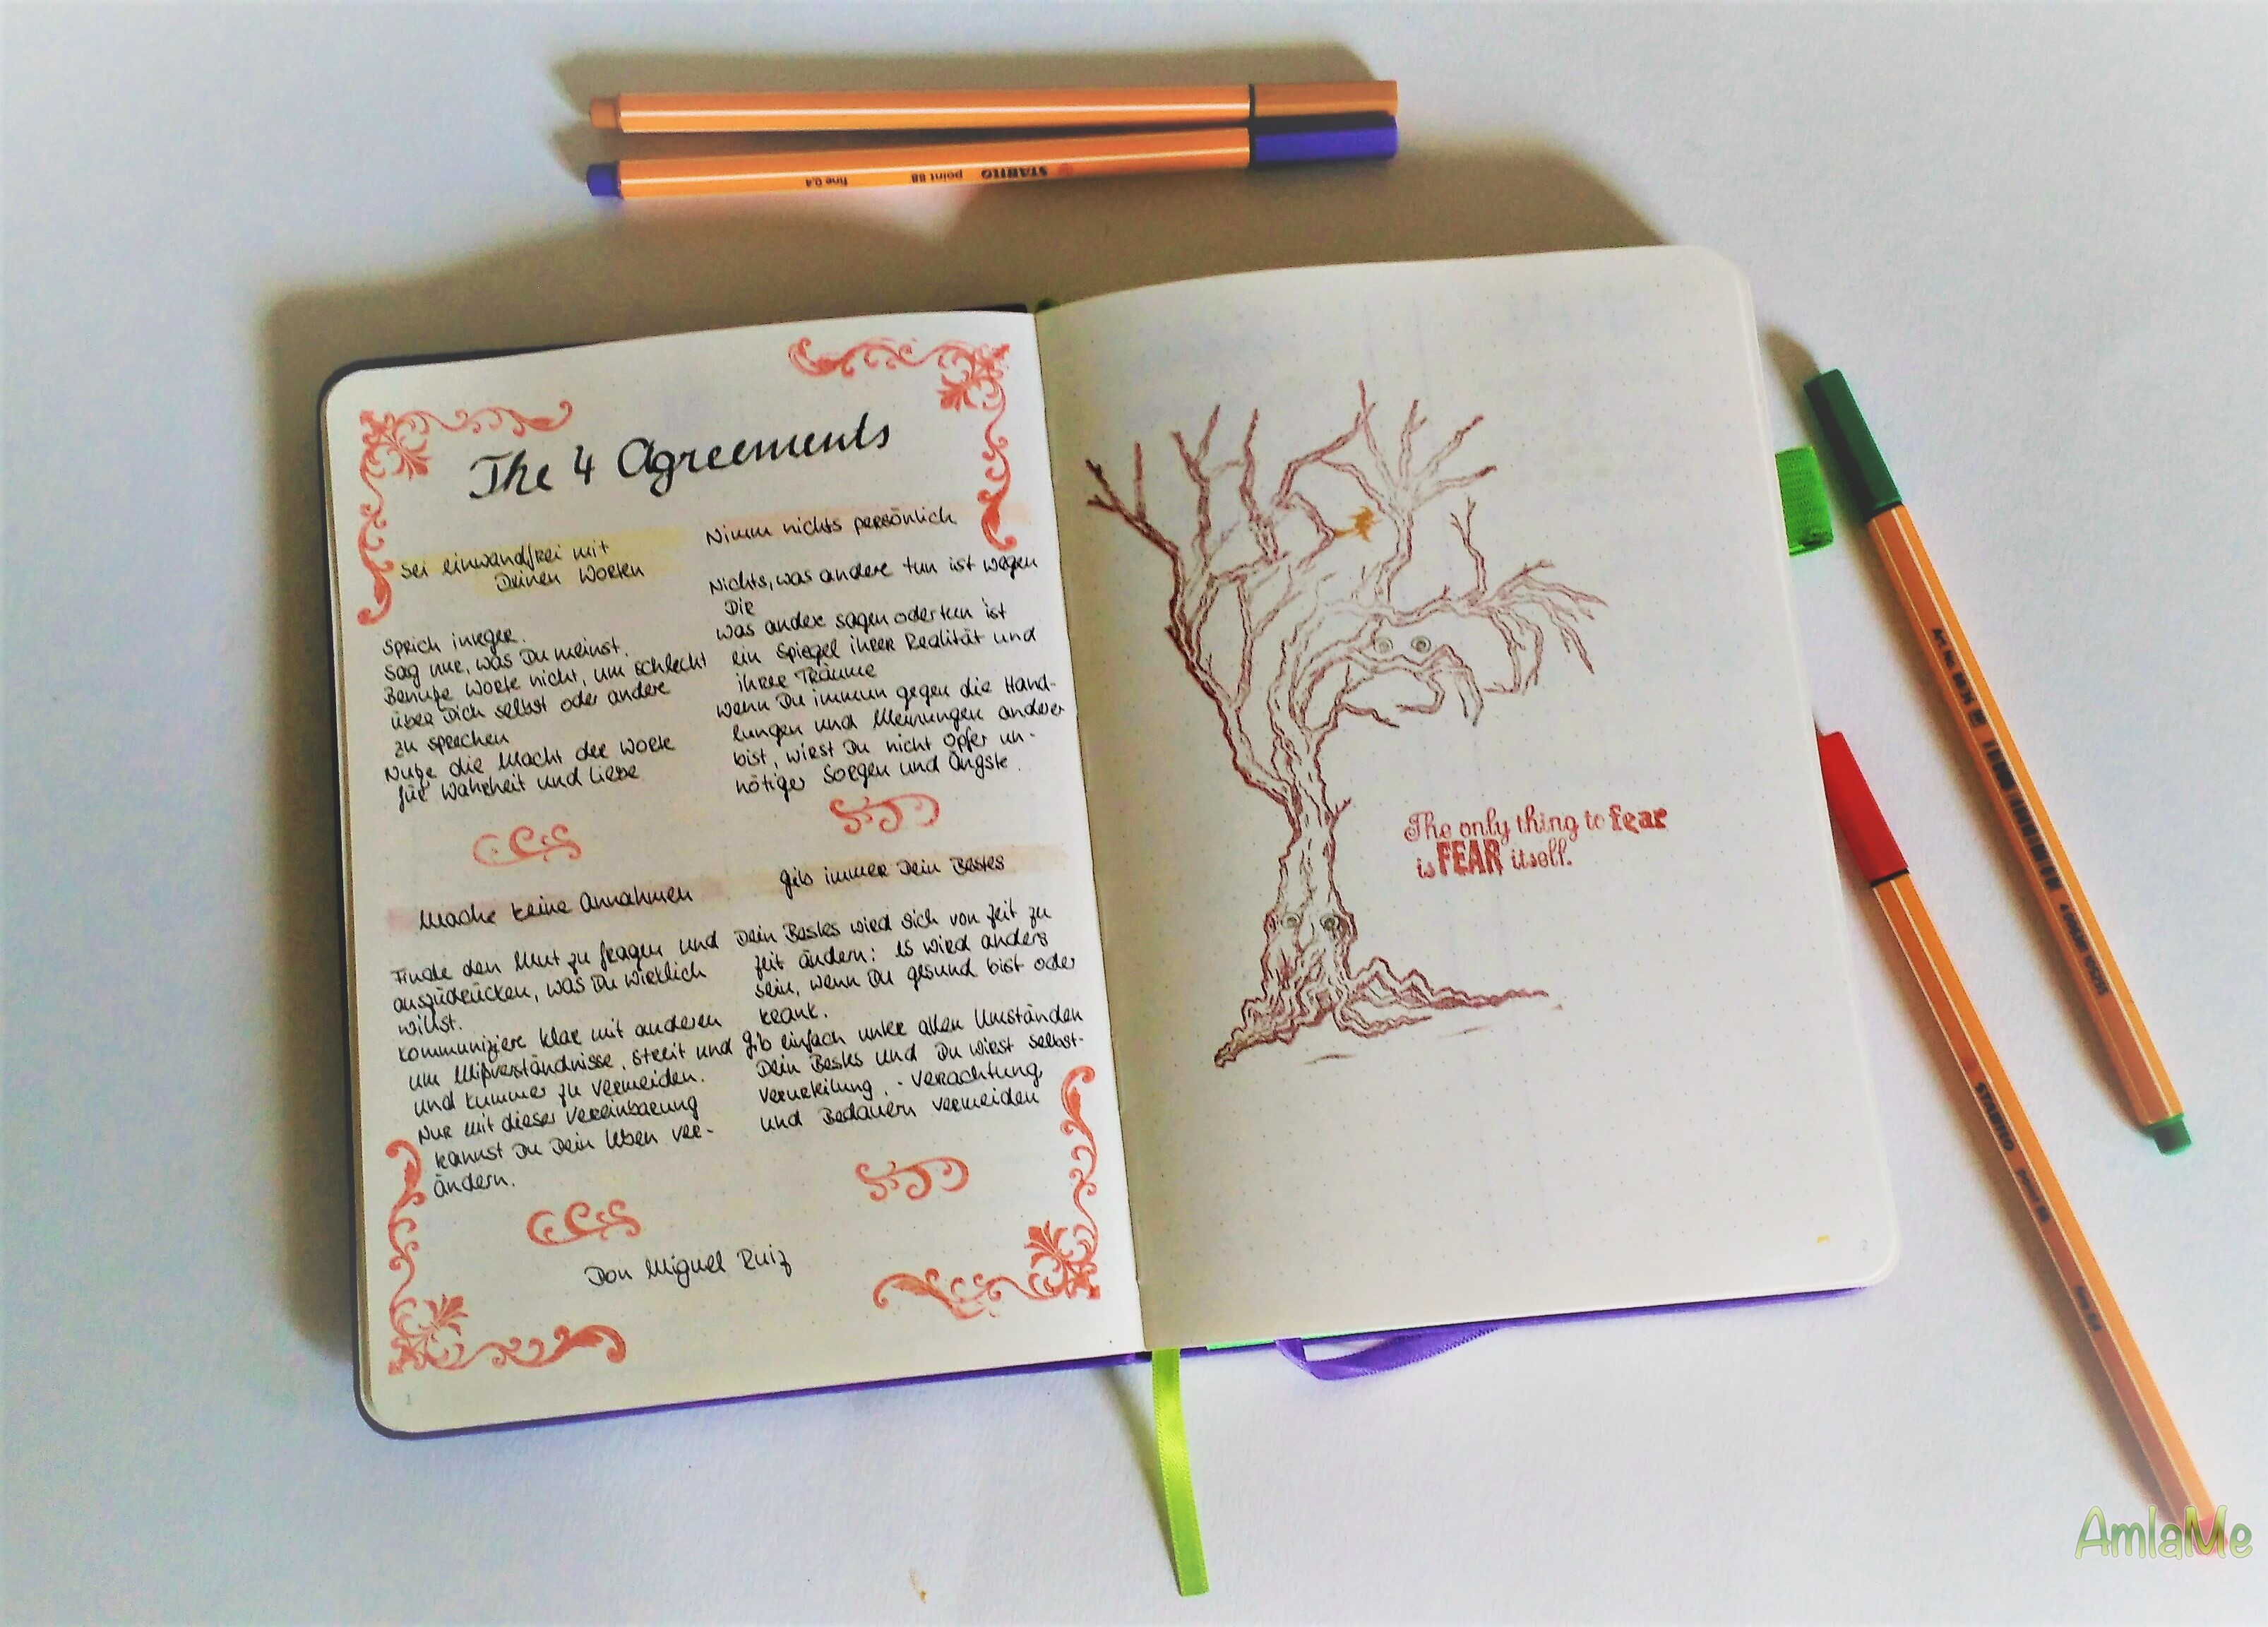 The 4 Agreements
Sei einwandfrei mit
Deinen Worten
Sprich integer.
Sag nur, was Du meinst.
Benutze Worte nicht, um schlecht
über Dich selbst oder andere
zu sprechen
Nutze die Macht der Worte
für Wahrheit und Liebe
Nimm nichts persönlich
Nichts, was andere tun ist wegen
Dir
was andere sagen oder tun ist
ein Spiegel ihrer Realität und
ihrer Träume
wenn Du immun gegen die Hand-
lungen und Meinungen anderer
bist, wirst Du nicht Opfer un-
nötiger Sorgen und Ängste.
Mache keine Annahmen
Finde den Mut zu fragen und
auszudrücken, was Du wirklich
willst.
Kommuniziere klar mit anderen
um Mißverständnisse, Streit und
und Kummer zu vermeiden.
Nur mit dieser Vereinbarung
kannst Du Dein Leben ver-
ändern.
Gib immer Dein Bestes
Dein Bestes wird sich von Zeit zu
Zeit ändern: Es wird anders
sein, wenn Du gesund bist oder
krank.
Gib einfach unter allen Umständen
Dein Bestes und Du wirst Selbst-
verurteilung, -verachtung
und Bedauern vermeiden
Don Miguel Ruiz
1
The only thing to fear
is FEAR itself.
2
STABILO point 88 fine 0,4
STABILO point 88
AmlaMe